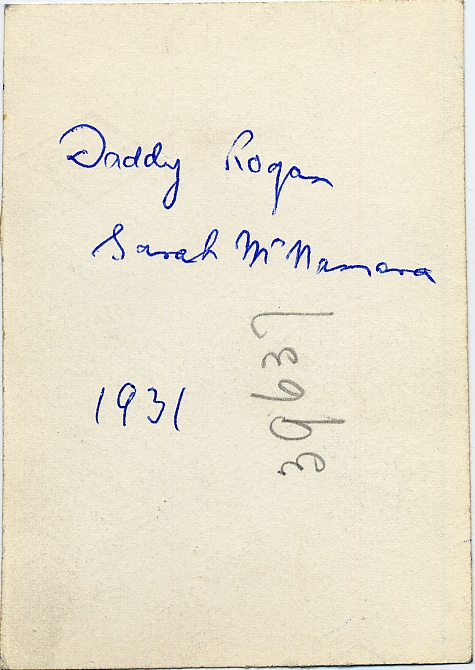 Daddy Rogan
Sarah McNamara
1931
39637